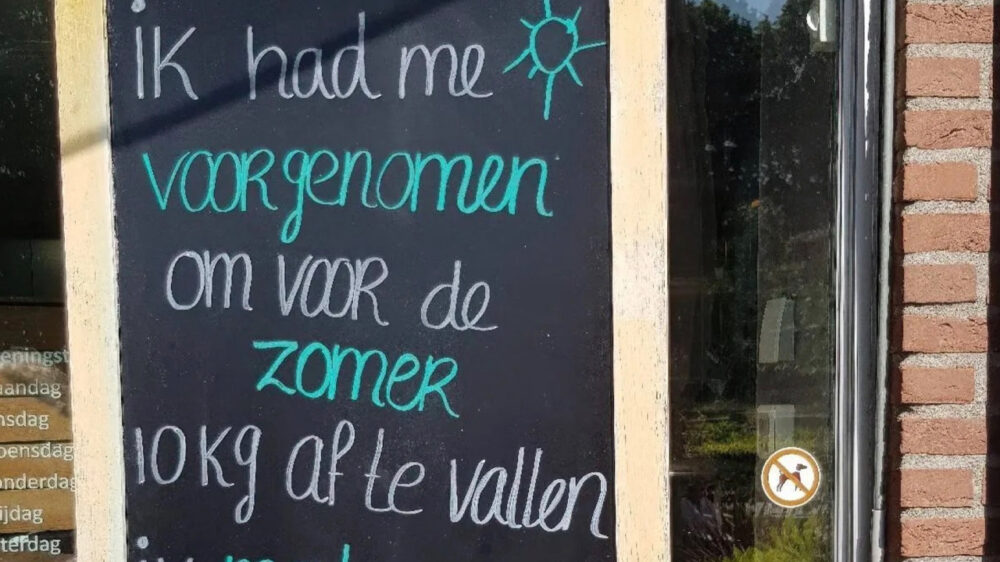 ik had me
voorgenomen
om voor de
zomer
10kg af te vallen
eningst
aandag
nsdag
oensdag
onderdag
ijdag
terdag